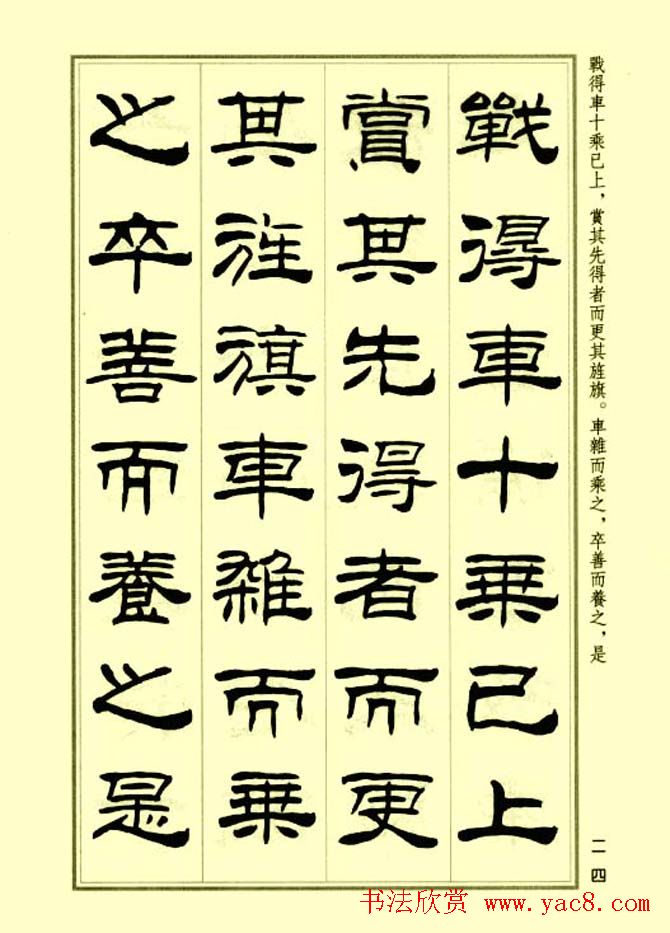 戰得車十乘已上
賞其先得者而更
其旌旗車雜而乘
之卒善而養之是
戰得車十乘已上，賞其先得者而更其旌旗。車雜而乘之，卒善而養之，是
二四
书法欣赏 www.yac8.com